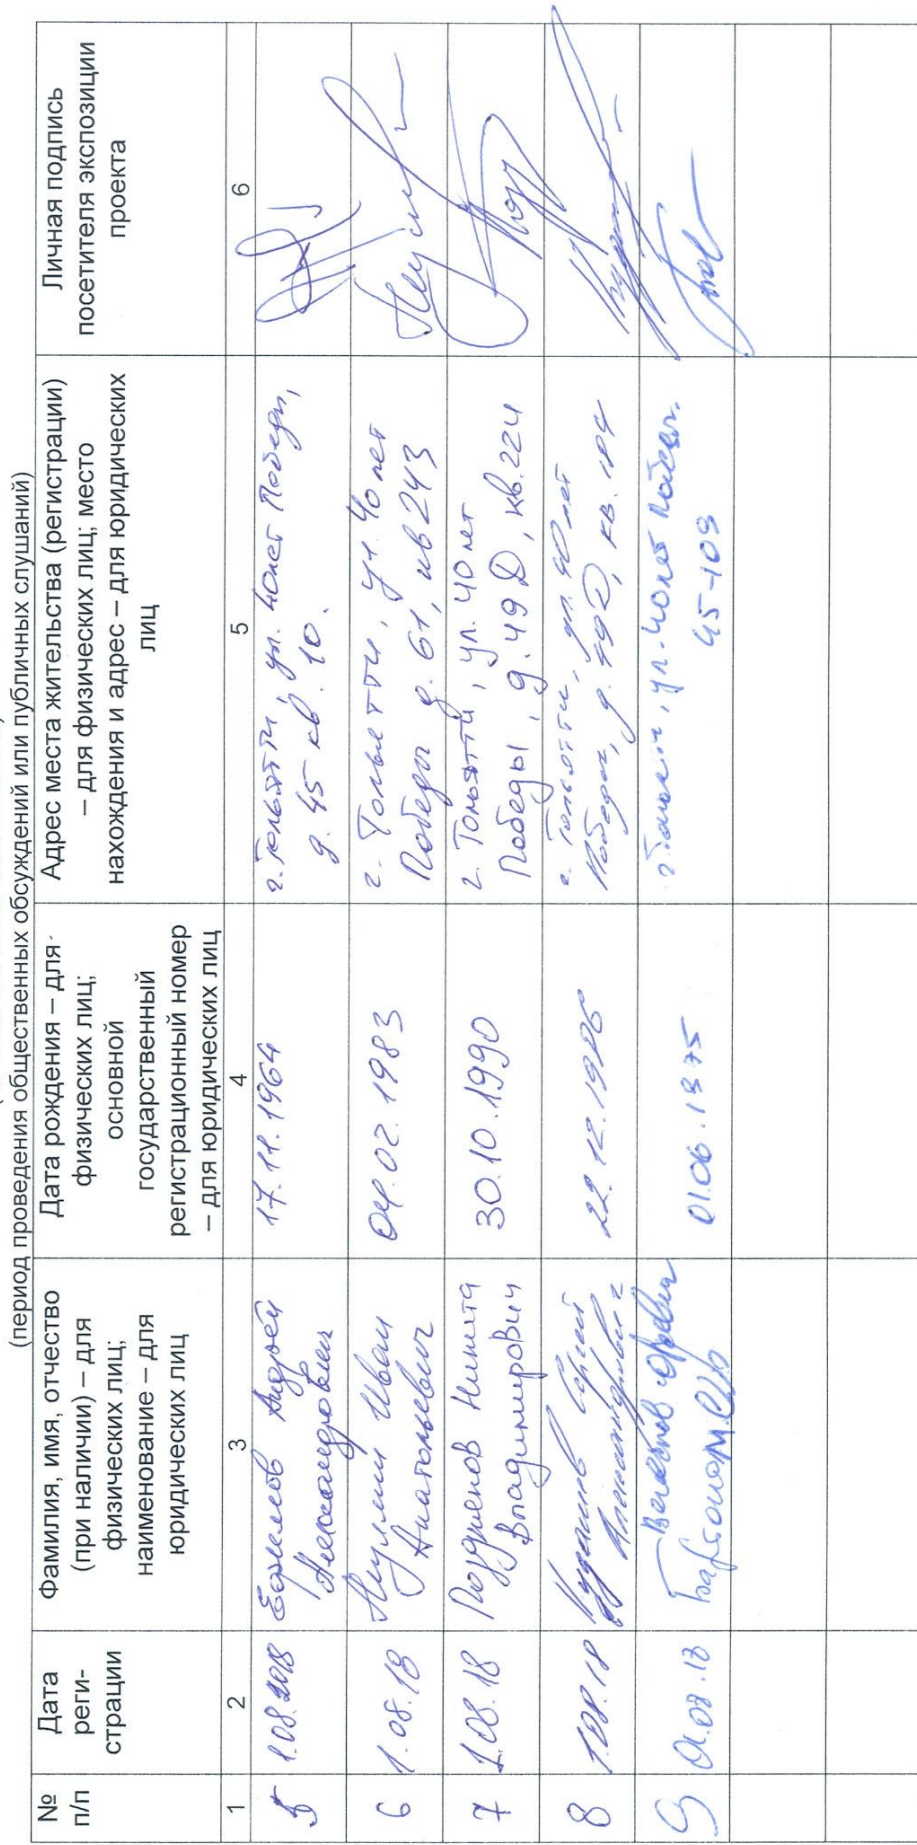 (период проведения общественных обсуждений или публичных слушаний)
№
п/п
Дата
реги-
страции
Фамилия, имя, отчество
(при наличии) – для
физических лиц;
наименование – для
юридических лиц
Дата рождения – для
физических лиц;
основной
государственный
регистрационный номер
– для юридических лиц
Адрес места жительства (регистрации)
– для физических лиц; место
нахождения и адрес – для юридических
лиц
Личная подпись
посетителя экспозиции
проекта
1
2
3
4
5
6
5
1.08.2018
Андрей
Александрович
17.11.1964
г. Тольятти, ул. 40 лет Победы,
д. 45 кв. 10.
6
1.08.18
Иван
Анатольевич
04.02.1983
г. Тольятти, ул. 40 лет
Победы д. 61, кв 243
7
1.08.18
Поздняков Никита
Владимирович
30.10.1990
г. Тольятти, ул. 40 лет
Победы, д. 49 Д, кв. 224
8
1.08.18
Сергей
22.12.1986
г. Тольятти, ул. 40 лет
Победы, д. 49Д, кв. 184
9
01.08.18
01.06.1975
г. Тольятти, ул. 40 лет Победы
45-109